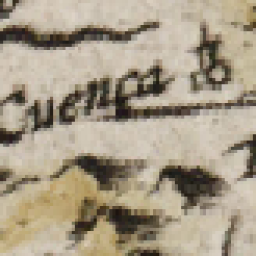 Cuença